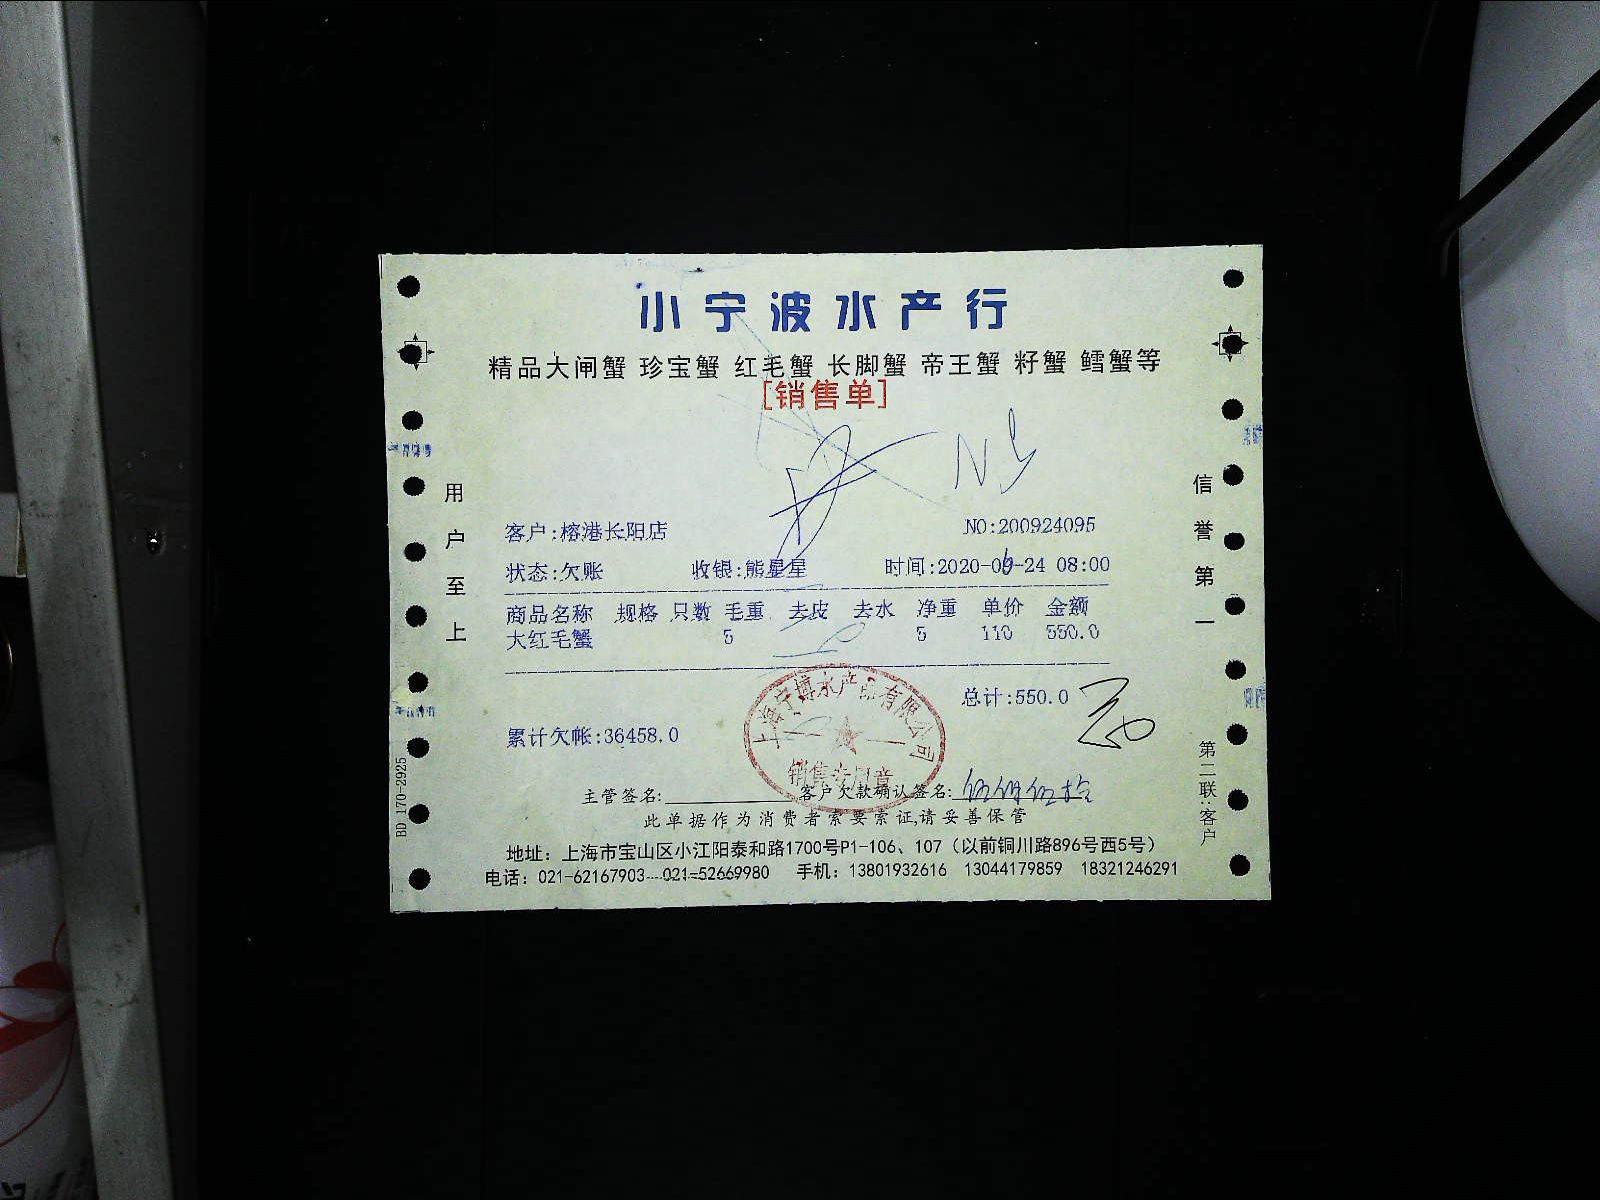 小宁波水产行
精品大闸蟹 珍宝蟹 红毛蟹 长脚蟹 帝王蟹 籽蟹 鳕蟹等
[销售单]
客户:榕港长阳店 NO:200924095
状态:欠账 收银:熊星星 时间:2020-09-24 08:00
商品名称 规格 只数 毛重 去皮 去水 净重 单价 金额
大红毛蟹 5 5 110 550.0
总计:550.0
累计欠帐:36458.0
上海宁博水产品有限公司
销售专用章
主管签名: 客户欠款确认签名: 伍佰伍拾
此单据作为消费者索要索证,请妥善保管
地址：上海市宝山区小江阳泰和路1700号P1-106、107（以前铜川路896号西5号）
电话：021-62167903 021-52669980 手机：13801932616 13044179859 18321246291
用户至上
信誉第一
第二联:客户
BD 170-2925